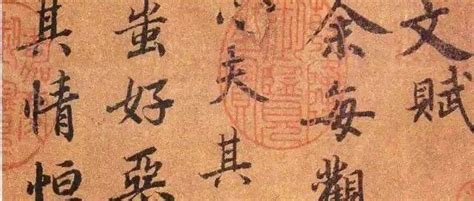 文賦
余每觀
心夫其
蚩好惡
其情恒